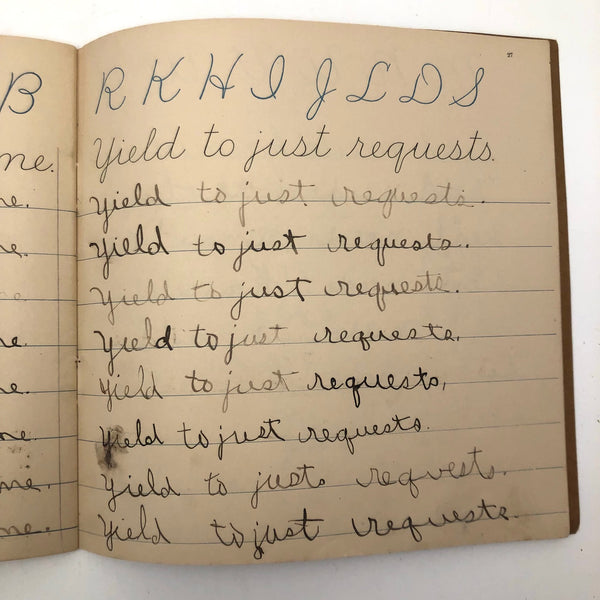 27
B
R K H I J L D S
me.
Yield to just requests.
ne.
Yield to just requests.
ne.
Yield to just requests.
ne.
Yield to just requests.
ne.
Yield to just requests.
ne.
Yield to just requests,
me.
Yield to just requests.
me.
Yield to just. requests.
me.
Yield to just requests.